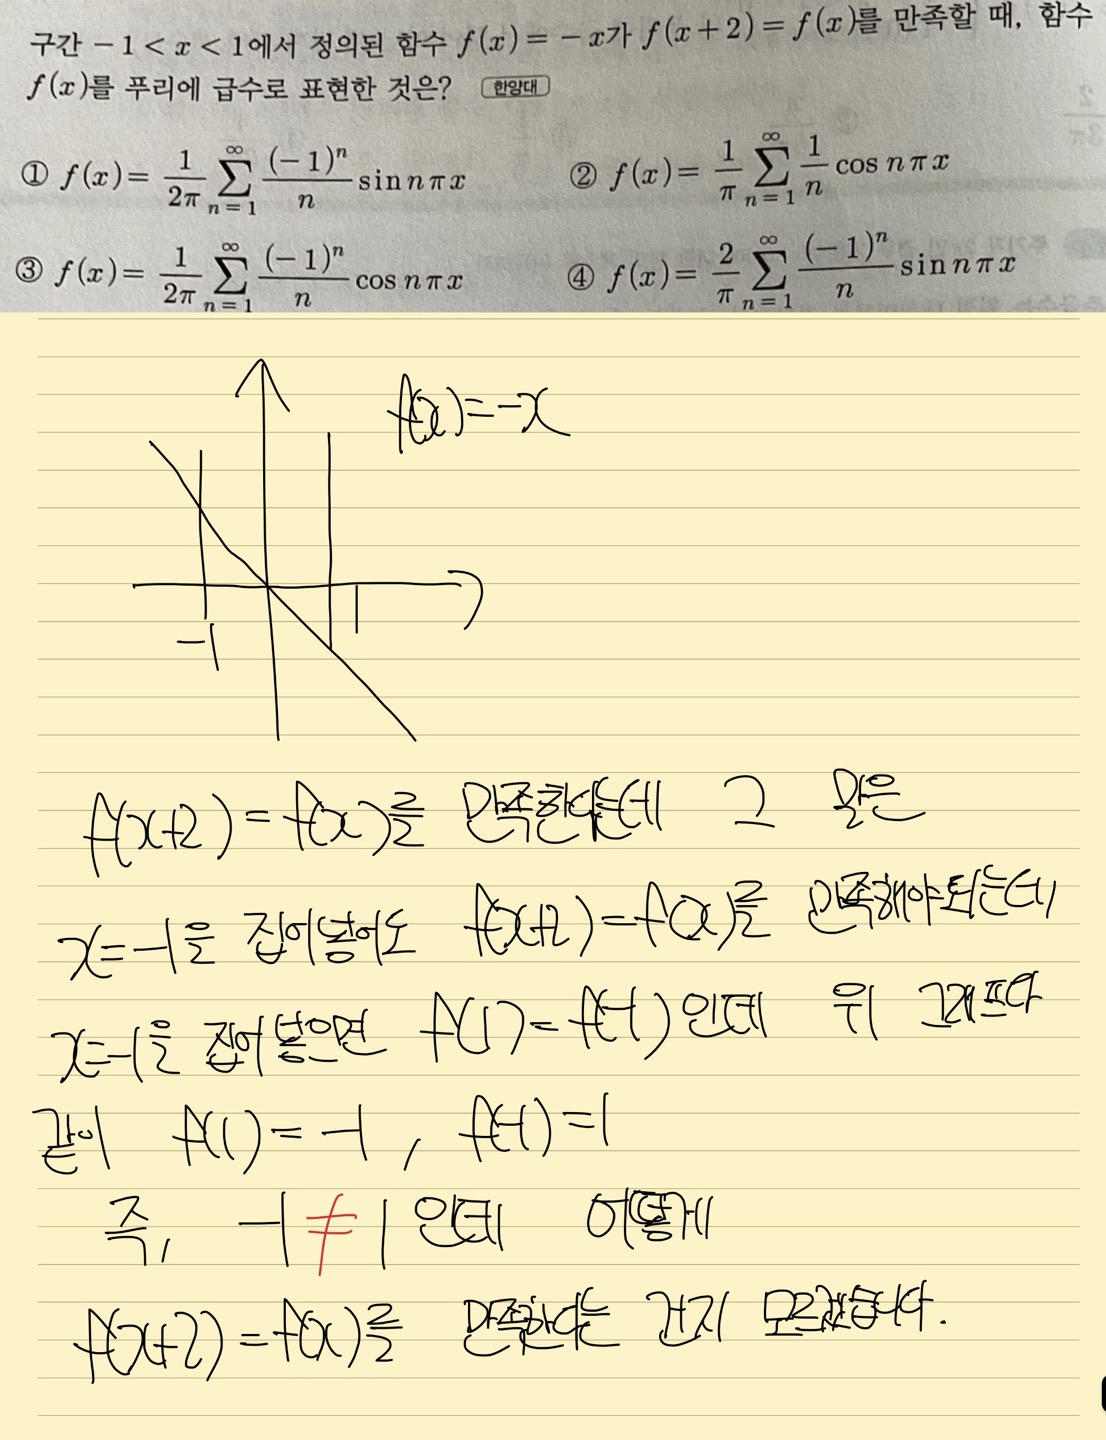 구간 −1 < x < 1에서 정의된 함수 f(x) = −x가 f(x+2) = f(x)를 만족할 때, 함수
f(x)를 푸리에 급수로 표현한 것은? 한양대
① f(x) = \frac{1}{2π} \sum_{n=1}^{∞} \frac{(−1)^n}{n} sin nπx
② f(x) = \frac{1}{π} \sum_{n=1}^{∞} \frac{1}{n} cos nπx
③ f(x) = \frac{1}{2π} \sum_{n=1}^{∞} \frac{(−1)^n}{n} cos nπx
④ f(x) = \frac{2}{π} \sum_{n=1}^{∞} \frac{(−1)^n}{n} sin nπx
f(x)=−x
−1
1
f(x+2)=f(x)를 만족한다는데 그 말은
x=−1을 집어넣어도 f(x+2)=f(x)를 만족해야되는데
x=−1을 집어넣으면 f(1)=f(−1)인데 위 그래프와
같이 f(1)=−1, f(−1)=1
즉, −1≠1인데 어떻게
f(x+2)=f(x)를 만족한다는 건지 모르겠습니다.